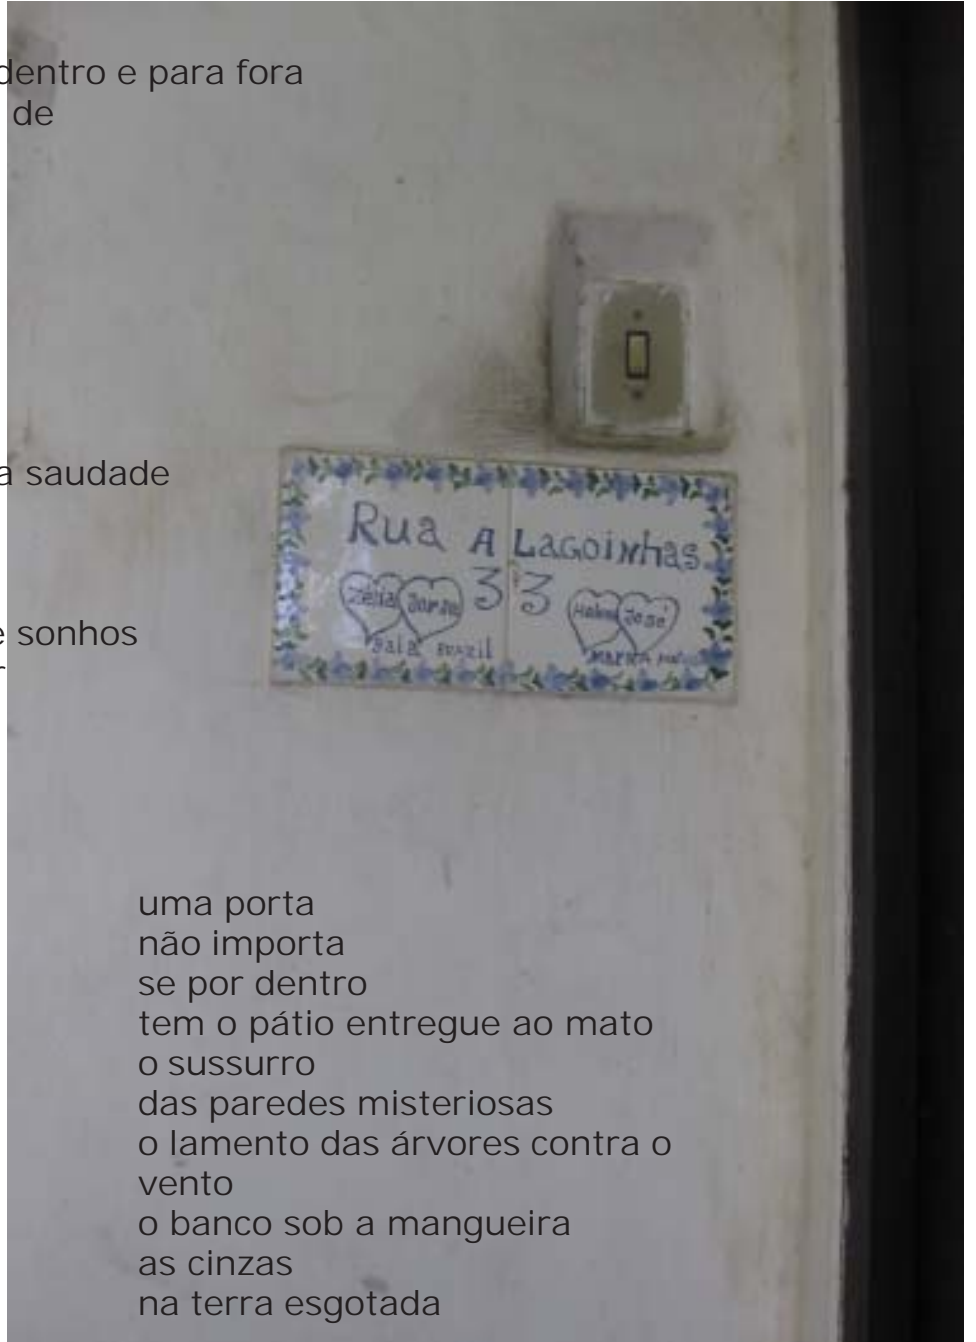 dentro e para fora
de
a saudade
e sonhos
Rua A Lagoinhas
33
Zélia Jorge
José
Baía Brazil
uma porta
não importa
se por dentro
tem o pátio entregue ao mato
o sussurro
das paredes misteriosas
o lamento das árvores contra o
vento
o banco sob a mangueira
as cinzas
na terra esgotada